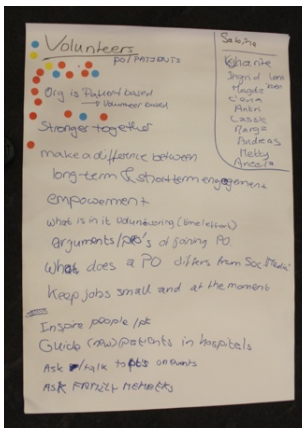 Volunteers
PO/PATIENTS
Org is Patient based
→ Volunteer based
Stronger together
make a difference between
long-term & short term engagement
empowerment
What is in it volunteering (time/effort)
arguments/pro's of joining PO
What does a PO differs from Soc. Media
Keep jobs small and at the moment
Inspire people /pt
Guide (new) patients in hospitals
Ask /talk to pt's on events
Ask FAMILY MEMBERS
Sabrina
Ingrid
Elena
Cassie
Marga
Andreas
Hetty